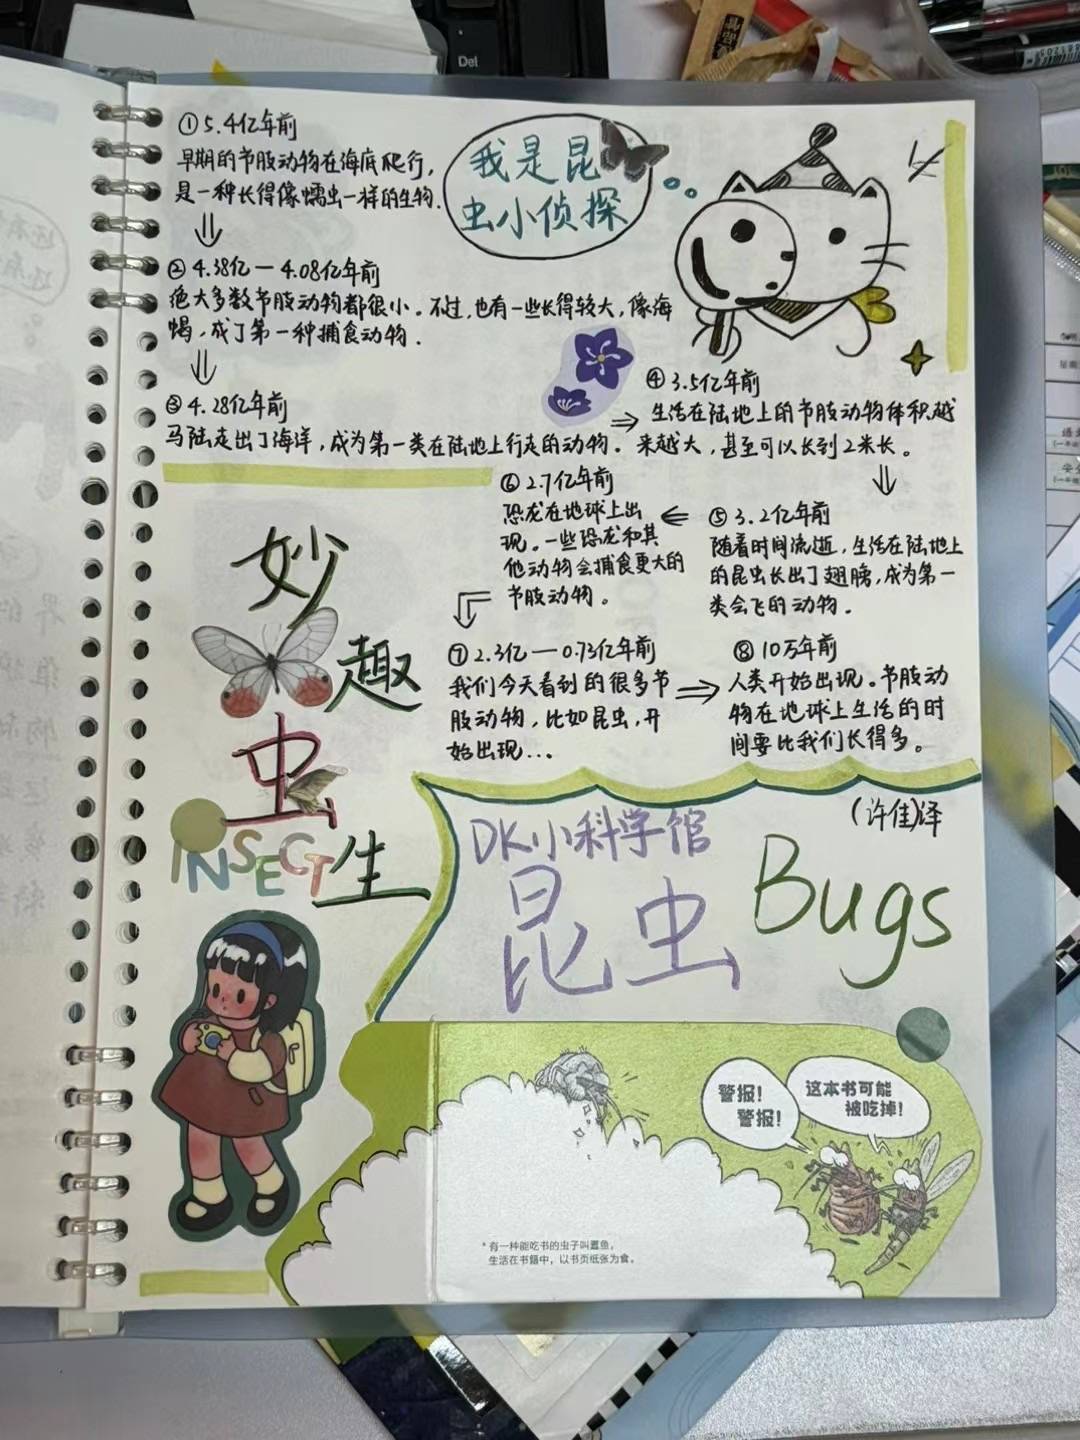 Del
我是昆
虫小侦探
①5.4亿年前
早期的节肢动物在海底爬行,
是一种长得像蠕虫一样的生物.
②4.38亿—4.08亿年前
绝大多数节肢动物都很小。不过,也有一些长得较大,像海
蝎,成了第一种捕食动物.
③4.28亿年前
马陆走出了海洋,成为第一类在陆地上行走的动物.
④3.5亿年前
生活在陆地上的节肢动物体积越
来越大,甚至可以长到2米长。
⑤3.2亿年前
随着时间流逝,生活在陆地上
的昆虫长出了翅膀,成为第一
类会飞的动物.
⑥2.7亿年前
恐龙在地球上出
现。一些恐龙和其
他动物会捕食更大的
节肢动物。
⑦2.3亿—0.73亿年前
我们今天看到的很多节
肢动物,比如昆虫,开
始出现...
⑧10万年前
人类开始出现。节肢动
物在地球上生活的时
间要比我们长得多。
妙
趣
虫
INSECT生
(许佳)译
DK小科学馆
昆虫
Bugs
警报!
警报!
这本书可能
被吃掉!
*有一种能吃书的虫子叫蠹鱼,
生活在书籍中,以书页纸张为食。